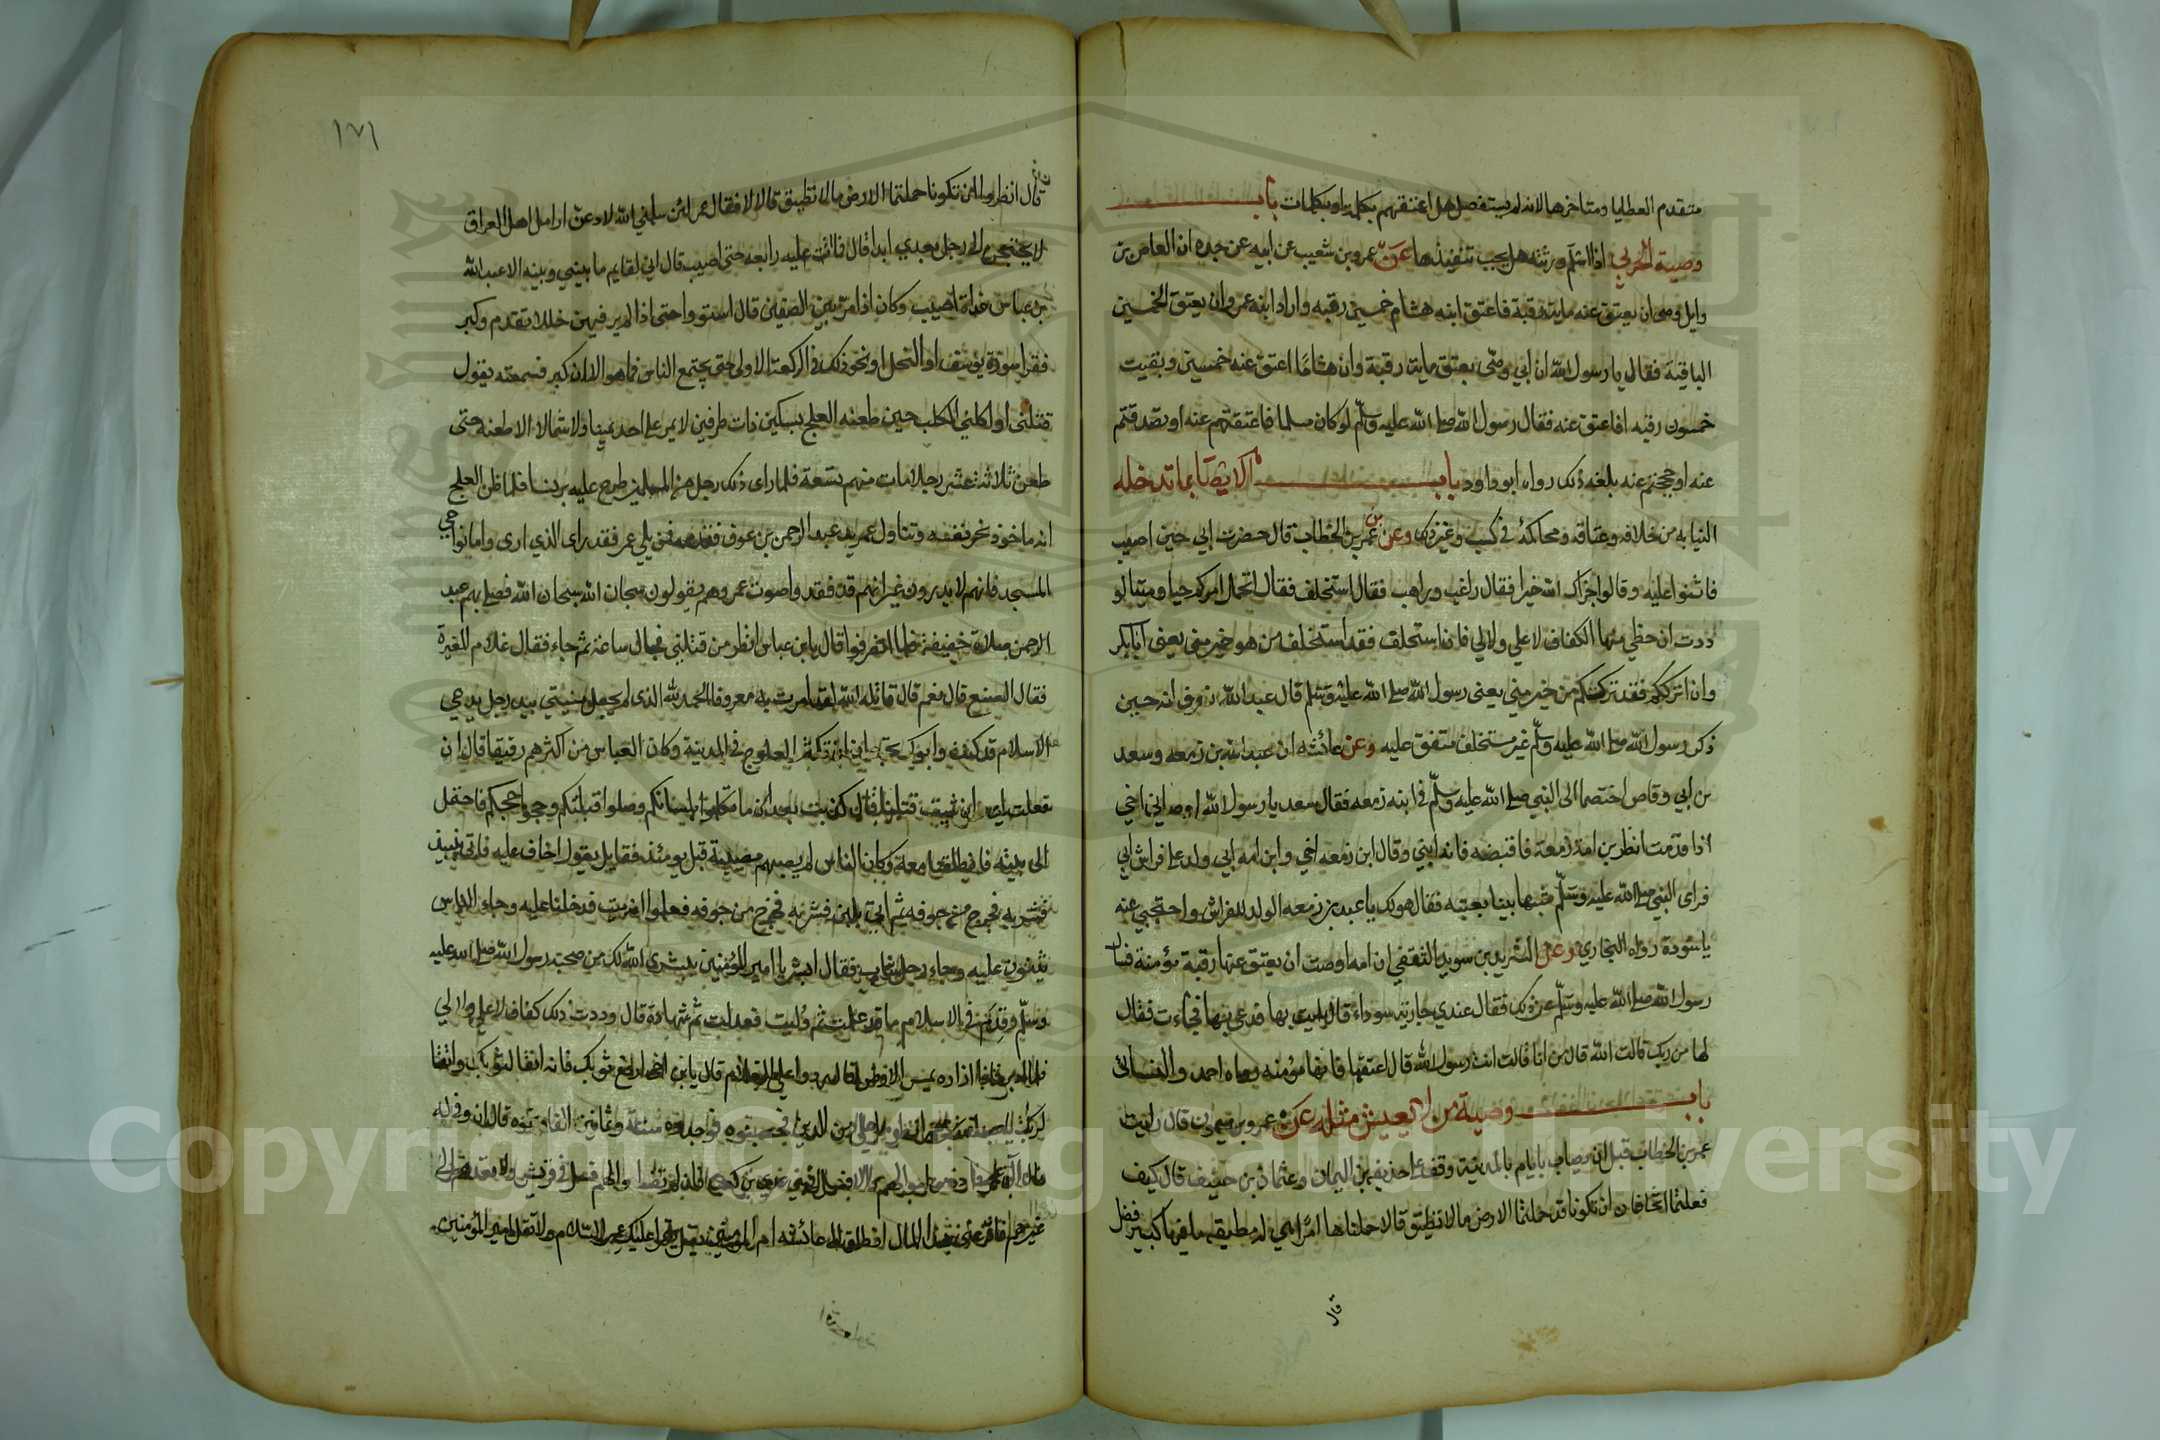 متقدم العطايا ومتاخرها لانه لم يستفصل هل اعتقهم بكلمة او بكلمات باب
وصية الحربي اذا اسلم ورثته هل يجب تنفيذها عن عمرو بن شعيب عن ابيه عن جده ان العاص بن
وايل اوصى ان يعتق عنه ماية رقبة فاعتق ابنه هشام خمسين رقبه واراد ابنه عمرو ان يعتق الخمسين
الباقية فقال يا رسول الله ان ابي وصى بعتق ماية رقبة وان هشاما اعتق عنه خمسين وبقيت
خمسون رقبه افاعتق عنه فقال رسول الله صلى الله عليه وسلم لو كان مسلما فاعتقتم عنه او تصدقتم
عنه او حججتم عنه بلغه ذلك رواه ابو داود باب الايصا بما تدخله
النيابه من خلافه وعتاقه ومحاكمة في نسب وغير ذلك وعن بن عمر بن الخطاب قال حضرت ابي حين اصيب
فاثنوا عليه وقالوا جزاك الله خيرا فقال راغب وراهب فقالوا استخلف فقال اتحمل امركم حيا وميتا لو
ددت ان حظي منها الكفاف لا علي ولا لي فان استخلف فقد استخلف من هو خير مني يعنى ابا بكر
وان اترككم فقد ترككم من خير مني يعنى رسول الله صلى الله عليه وسلم قال عبد الله فعرفت انه حين
ذكر رسول الله صلى الله عليه وسلم غير مستخلف متفق عليه وعن عائشه ان عبد الله بن زمعه وسعد
بن ابي وقاص اختصما الى النبي صلى الله عليه وسلم في ابنه زمعه فقال سعد يا رسول الله اوصاني اخي
اذا قدمت انظر بن امة زمعة فاقبضه فانه ابني وقال ابن زمعه اخي وابن امه ابي ولد على فراش ابي
فراى النبي صلى الله عليه وسلم شبها بينا بعتبه فقال هو لك يا عبد بن زمعه الولد للفراش واحتجبي عنه
يا سودة رواه البخاري وعن الشريد بن سويد الثقفي ان امه اوصت ان يعتق عنها رقبة مؤمنة فسال
رسول الله صلى الله عليه وسلم عن ذلك فقال عندي جارية سوداء قال ايت بها فدعى بها فجاءت فقال
لها من ربك قالت الله قال من انا قالت انت رسول الله قال اعتقها فانها مؤمنه رواه احمد والنسائى
باب وصية من لا يعيش مثله عن عمرو بن ميمون قال رايت
عمر بن الخطاب قبل ان يصاب بايام بالمدينة وقف على حذيفه بن اليمان وعثمان بن حنيف قال كيف
فعلتما اتخافان ان تكونا قد حملتما الارض ما لا تطيق قالا حملناها امرا هي له مطيقه ما فيها كبير فضل
قال
١٧١
قال انظرا ان تكونا حملتما الارض ما لا تطيق قالا لا فقال عمر لئن سلمني الله لادعن ارامل اهل العراق
لا يحتجن الى رجل بعدي ابدا قال فما اتت عليه رابعه حتى اصيب قال اني لقايم ما بيني وبينه الا عبد الله
بن عباس غداة اصيب وكان اذا مر بين الصفين قال استووا حتى اذا لم ير فيهن خللا تقدم وكبر
فقرا سورة يوسف او النحل او نحو ذلك في الركعة الاولى حتى يجتمع الناس فما هو الا ان كبر فسمعته يقول
قتلنى او اكلني الكلب حين طعنه العلج بسكين ذات طرفين لا يمر على احد يمينا ولا شمالا الا طعنه حتى
طعن ثلاثة عشر رجلا مات منهم تسعة فلما راى ذلك رجل من المسلمين طرح عليه برنسا فلما ظن العلج
انه ماخوذ نحر نفسه وتناول عمر يد عبد الرحمن بن عوف فقدمه فمن يلي عمر فقد راى الذي ارى واما نواحي
المسجد فانهم لا يدرون غير انهم قد فقدوا صوت عمر وهم يقولون سبحان الله سبحان الله فصلى بهم عبد
الرحمن صلاة خفيفة فلما انصرفوا قال يا بن عباس انظر من قتلني فجال ساعة ثم جاء فقال غلام المغيرة
فقال الصنع قال نعم قال قاتله الله لقد امرت به معروفا الحمد لله الذى لم يجعل منيتي بيد رجل يدعي
الاسلام قد كنت وابوك تحبان ان تكثر العلوج في المدينة وكان العباس من اكثرهم رقيقا قال ان
شيت فعلت اي ان شيت قتلنا قال كذبت بعد ان ما تكلموا بلسانكم وصلوا قبلتكم وحجوا حجكم فاحتمل
الى بيته فانطلقنا معه وكان الناس لم يصبهم مصيبة قبل يومئذ فقايل يقول اخاف عليه فاتي بنبيذ
فشربه فخرج من جوفه ثم اتى بلبن فشربه فخرج من جوفه فعلموا انه ميت فدخلنا عليه وجاء الناس
يثنون عليه وجاء رجل شاب فقال ابشر يا امير المؤمنين ببشرى الله لك من صحبة رسول الله صلى الله عليه
وسلم وقدم في الاسلام ما قد علمت ثم وليت فعدلت ثم شهادة قال وددت ذلك كفاف لا علي ولا لي
فلما ادبر اذا ازاره يمس الارض قال ردوا علي الغلام قال يا بن اخي ارفع ثوبك فانه انقا لثوبك واتقا
لربك
غيرهم فاد عنى هذا المال انطلق الى عائشة ام المؤمنين فقل يقرا عليك عمر السلام ولا تقل امير المؤمنين